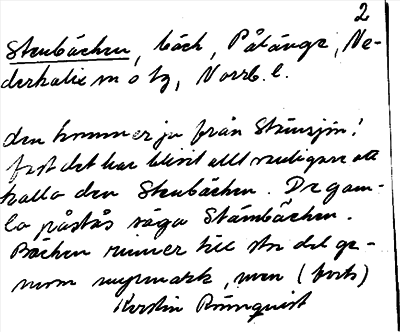 2
Stenbäcken, bäck, Påläng, Ne-
derkalix sn o tg, Norrb. l.
den kommer ju från Stensjön!
fast det har blivit allt vanligare att
kalla den Stenbäcken. De gam-
la påstås säga Stämbäcken.
Bäcken rinner till stor del ge-
nom myrmark, men (forts)
Kerstin Rönnquist